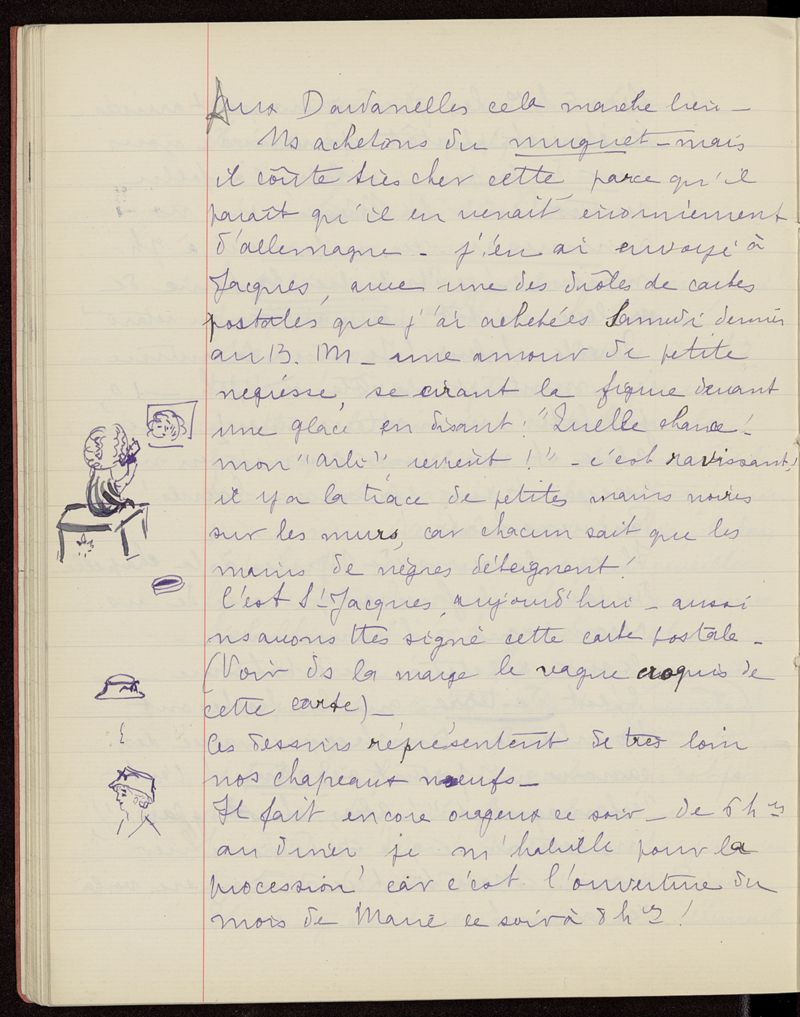 Aux Dardanelles cela marche bien –
Ns achetons du muguet – mais
il coûte très cher cette parce qu'il
paraît qu'il en venait énormément
d'allemagne – j'en ai envoyé à
Jacques, avec une des drôles de cartes
postales que j'ai achetées Samedi dernier
au B. M – une amour de petite
negrésse, se cirant la figure devant
une glace en disant : "Quelle chance !
mon "Arbi", revient !" – c'est ravissant,
il y a la trace de petites mains noires
sur les murs, car chacun sait que les
mains de nègres déteignent !
C'est St Jacques, aujourd'hui – aussi
ns avons ttes signé cette carte postale –
(Voir ds la marge le vague croquis de
cette carte) –
Ces dessins représentent de très loin
nos chapeaux neufs –
Il fait encore orageux ce soir – de 6 hrs
au diner je m'habille pour la
procession car c'est l'ouverture du
mois de Marie ce soir à 8 hrs !